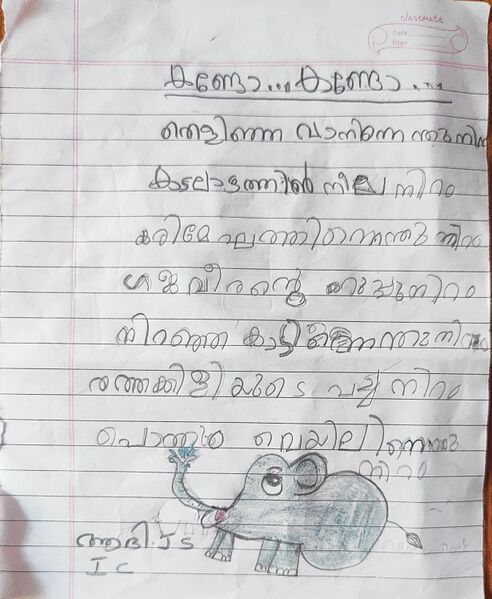 classmate
Date
Page
കണ്ടോ...കണ്ടോ...
തെളിഞ്ഞ വാനിനെന്തുനിറം
കടലാഴത്തിൻ നീല നിറം
കരിമേഘത്തിനെന്തു നിറം
ഗജവീരന്റെ കറുപ്പുനിറം
നിറഞ്ഞ കാട്ടിനെന്തുനിറം
തത്തക്കിളിയുടെ പച്ച നിറം
പൊന്നും വെയിലിനെന്തു
നിറം
ആദി.J.S
I C